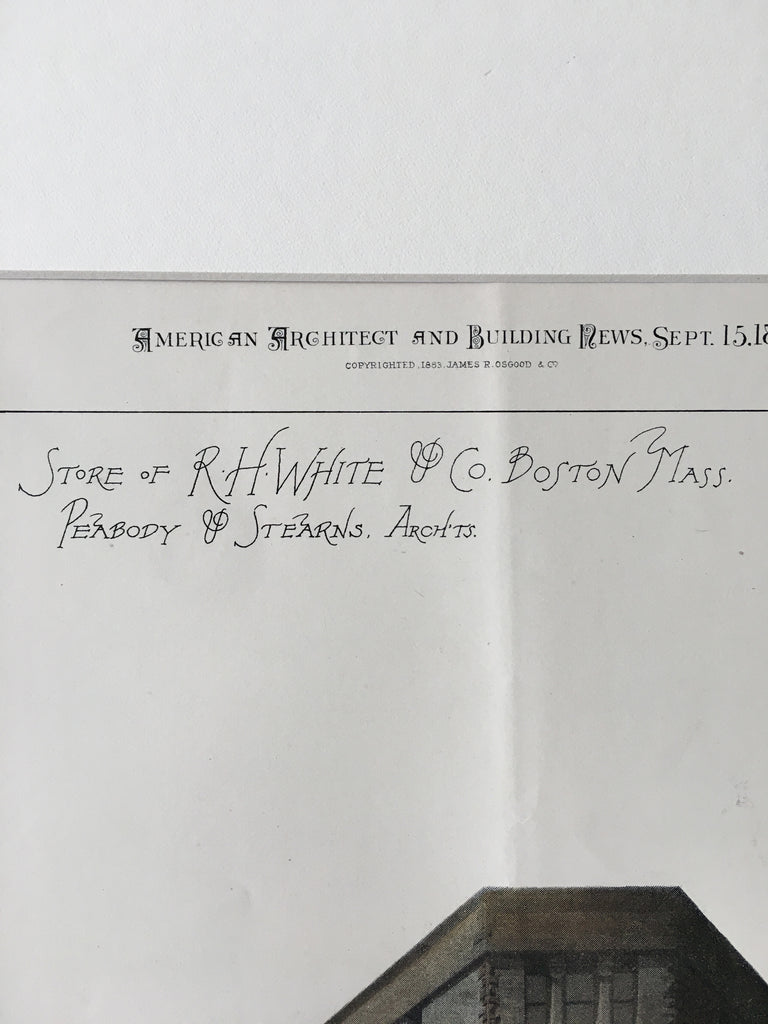 American Architect and Building News, Sept. 15.18
COPYRIGHTED, 1883. JAMES R. OSGOOD & CO
Store of R. H. White & Co. Boston Mass.
Peabody & Stearns, Arch'ts.